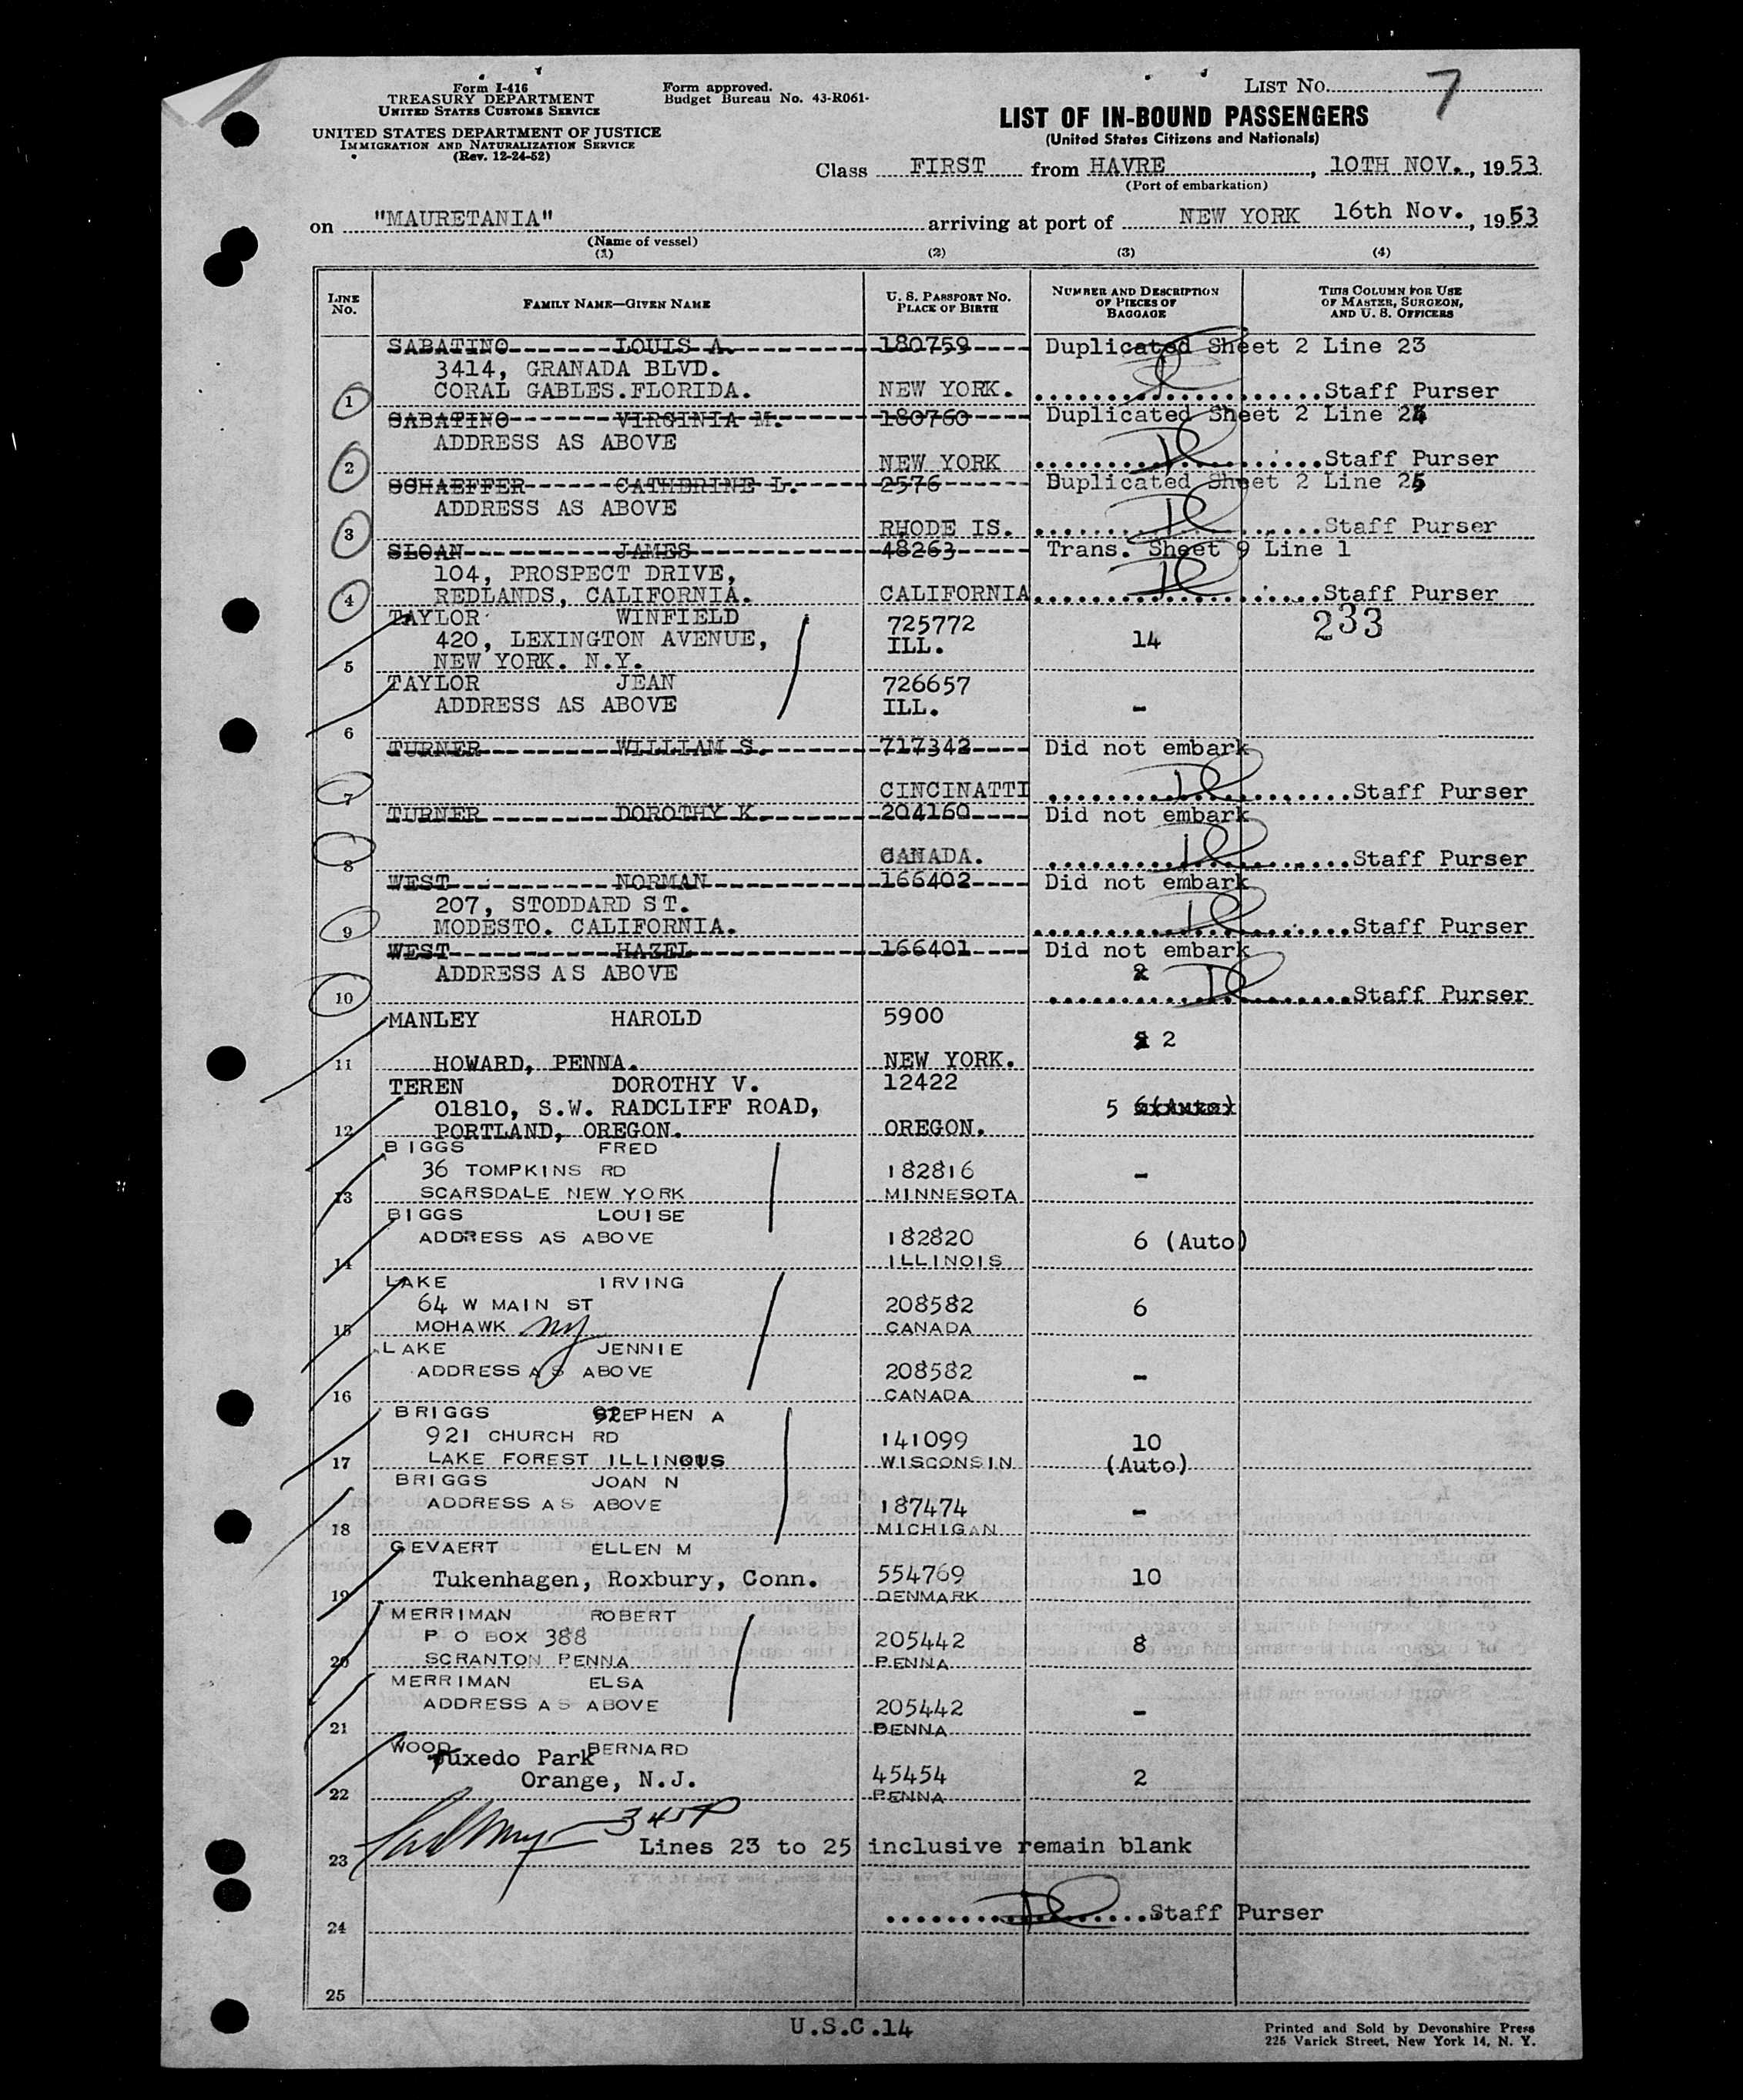 Form I-416
TREASURY DEPARTMENT
UNITED STATES CUSTOMS SERVICE
UNITED STATES DEPARTMENT OF JUSTICE
IMMIGRATION AND NATURALIZATION SERVICE
(Rev. 12-24-52)
Form approved.
Budget Bureau No. 43-R061-
LIST No. 7
LIST OF IN-BOUND PASSENGERS
(United States Citizens and Nationals)
Class FIRST from HAVRE, 10TH NOV., 1953
(Port of embarkation)
on "MAURETANIA" arriving at port of NEW YORK 16th Nov., 1953
(Name of vessel)
(1) (2) (3) (4)
LINE No. FAMILY NAME—GIVEN NAME U. S. PASSPORT NO. PLACE OF BIRTH NUMBER AND DESCRIPTION OF PIECES OF BAGGAGE THIS COLUMN FOR USE OF MASTER, SURGEON, AND U. S. OFFICERS
SABATINO LOUIS A. 180759 Duplicated Sheet 2 Line 23
3414, GRANADA BLVD.
1 CORAL GABLES.FLORIDA. NEW YORK. Staff Purser
SABATINO VIRGINIA M. 180760 Duplicated Sheet 2 Line 24
ADDRESS AS ABOVE
2 NEW YORK Staff Purser
SCHAEFFER CATHERINE L. 2576 Duplicated Sheet 2 Line 25
ADDRESS AS ABOVE
3 RHODE IS. Staff Purser
SLOAN JAMES 48263 Trans. Sheet 9 Line 1
104, PROSPECT DRIVE,
4 REDLANDS, CALIFORNIA. CALIFORNIA Staff Purser
TAYLOR WINFIELD 725772 233
420, LEXINGTON AVENUE, ILL. 14
5 NEW YORK. N.Y.
TAYLOR JEAN 726657
ADDRESS AS ABOVE ILL. -
6
TURNER WILLIAM S. 717342 Did not embark
7 CINCINATTI Staff Purser
TURNER DOROTHY K. 204160 Did not embark
8 CANADA. Staff Purser
WEST NORMAN 166402 Did not embark
207, STODDARD ST.
9 MODESTO. CALIFORNIA. Staff Purser
WEST HAZEL 166401 Did not embark
ADDRESS AS ABOVE 2
10 Staff Purser
MANLEY HAROLD 5900
2
11 HOWARD, PENNA. NEW YORK.
TEREN DOROTHY V. 12422
01810, S.W. RADCLIFF ROAD, 5 6(Auto)
12 PORTLAND, OREGON. OREGON.
BIGGS FRED
36 TOMPKINS RD 182816 -
13 SCARSDALE NEW YORK MINNESOTA
BIGGS LOUISE
ADDRESS AS ABOVE 182820 6 (Auto)
14 ILLINOIS
LAKE IRVING
64 W MAIN ST 208582 6
15 MOHAWK NY CANADA
LAKE JENNIE
ADDRESS AS ABOVE 208582 -
16 CANADA
BRIGGS STEPHEN A
921 CHURCH RD 141099 10
17 LAKE FOREST ILLINOUS WISCONSIN (Auto)
BRIGGS JOAN N
ADDRESS AS ABOVE 187474 -
18 MICHIGAN
GEVAERT ELLEN M
Tukenhagen, Roxbury, Conn. 554769 10
19 DENMARK
MERRIMAN ROBERT
P O BOX 388 205442 8
20 SCRANTON PENNA PENNA
MERRIMAN ELSA
ADDRESS AS ABOVE 205442 -
21 PENNA
WOOD BERNARD
Tuxedo Park
Orange, N.J. 45454 2
22 PENNA
Lines 23 to 25 inclusive remain blank
23
Staff Purser
24
25
U.S.C.14
Printed and Sold by Devonshire Press
225 Varick Street, New York 14, N. Y.